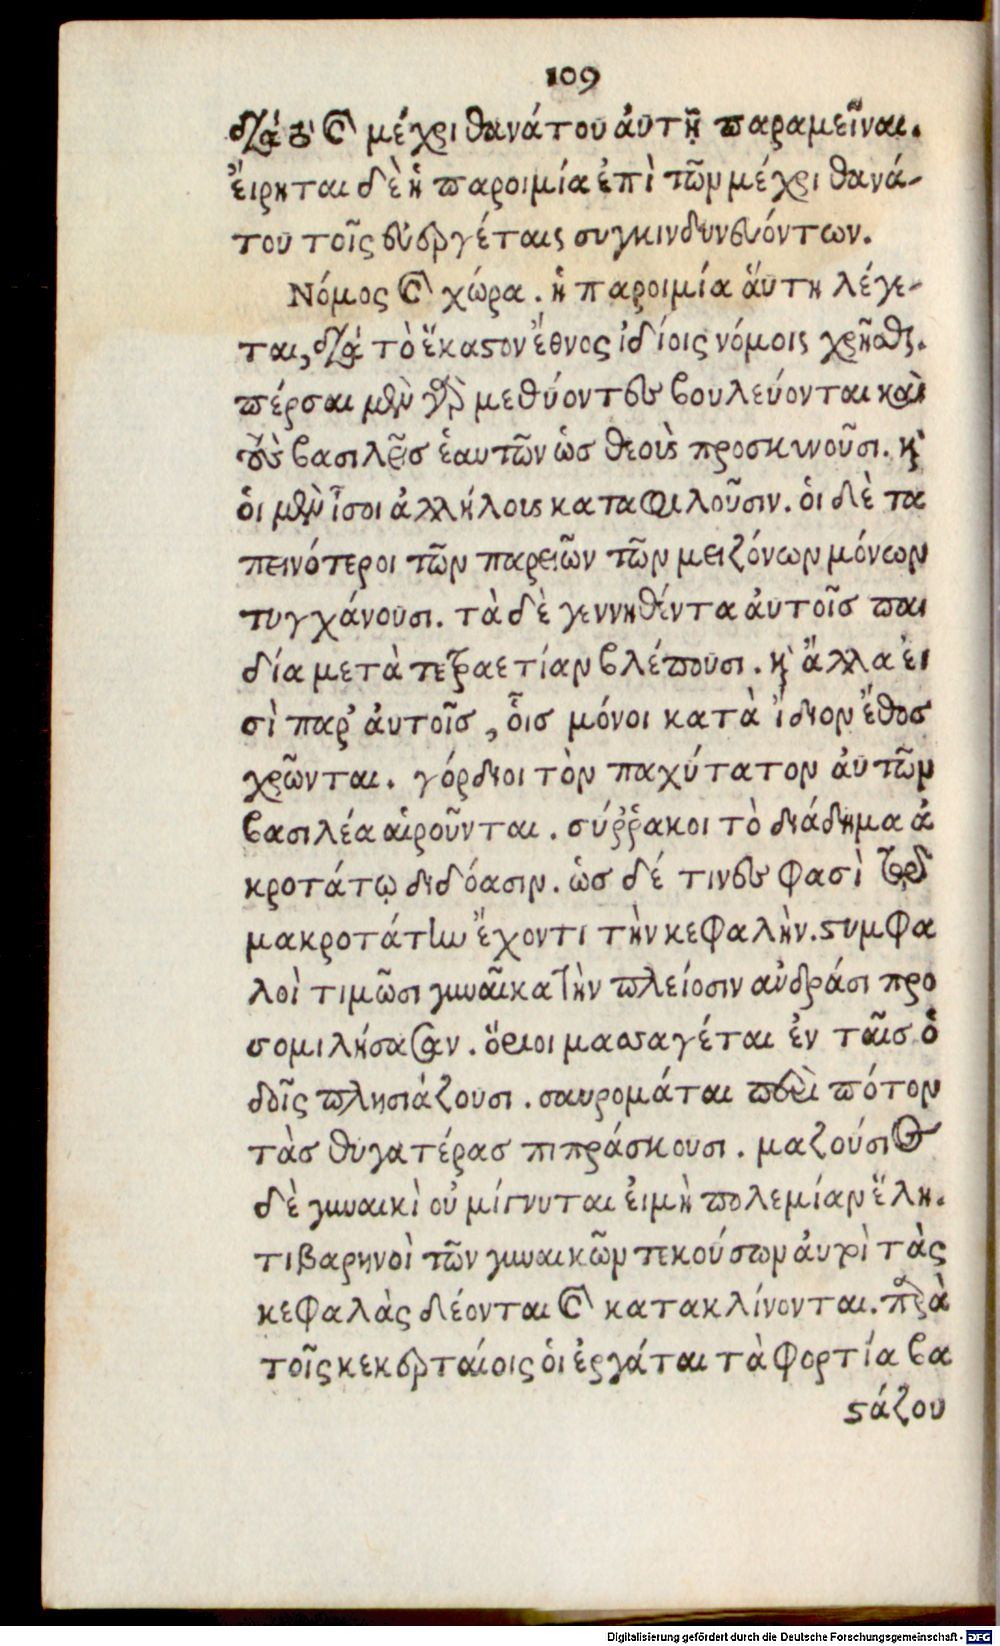 109
διὰ τοῦ καὶ μέχρι θανάτου ἀυτῇ παραμεῖναι.
ἔιρηται δὲ ἡ παροιμία ἐπὶ τῶν μέχρι θανά-
του τοῖς ἐυεργέταις συγκινδυνευόντων.
Νόμος καὶ χώρα. ἡ παροιμία ἅυτη λέγε-
ται, διὰ τὸ ἕκαστον ἔθνος ἰδίοις νόμοις χρῆσθαι.
πέρσαι μὲν γὰρ μεθύοντες βουλεύονται καὶ
τοὺς βασιλεῖς ἑαυτῶν ὡς θεοὺς προσκυνοῦσι. καὶ
ὁι μὲν ἶσοι ἀλλήλους καταφιλοῦσιν. ὁι δὲ τα
πεινότεροι τῶν παρειῶν τῶν μειζόνων μόνων
τυγχάνουσι. τὰ δὲ γεννηθέντα ἀυτοῖς παι
δία μετὰ τετραετίαν βλέπουσι. καὶ ἄλλα ἐι
σὶ παρ' ἀυτοῖς, οἷς μόνοι κατὰ ἴδιον ἔθος
χρῶνται. γόρδιοι τὸν παχύτατον ἀυτῶν
βασιλέα αἱροῦνται. σύῤῥακοι τὸ διάδημα ἀ
κροτάτῳ διδόασιν. ὡς δέ τινες φασὶ τῷ
μακροτάτην ἔχοντι τὴν κεφαλὴν. στυμφα
λοὶ τιμῶσι γυναῖκα τὴν πλείοσιν ἀνδράσι προ
σομιλήσασαν. ὅμοιοι μασσαγέται ἐν ταῖς ὁ
δοῖς πλησιάζουσι. σαυρομάται περὶ πότον
τὰς θυγατέρας πιπράσκουσι. μαζούσιος
δὲ γυναικὶ οὐ μίγνυται ἐιμὴ πολεμίαν ἕλη.
τιβαρηνοὶ τῶν γυναικῶν τεκούσων ἀυτοὶ τὰς
κεφαλὰς δέονται καὶ κατακλίνονται. παρὰ
τοῖς κεκερταίοις ὁι ἐργάται τὰ φορτία βα
στάζου
Digitalisierung gefördert durch die Deutsche Forschungsgemeinschaft - DFG